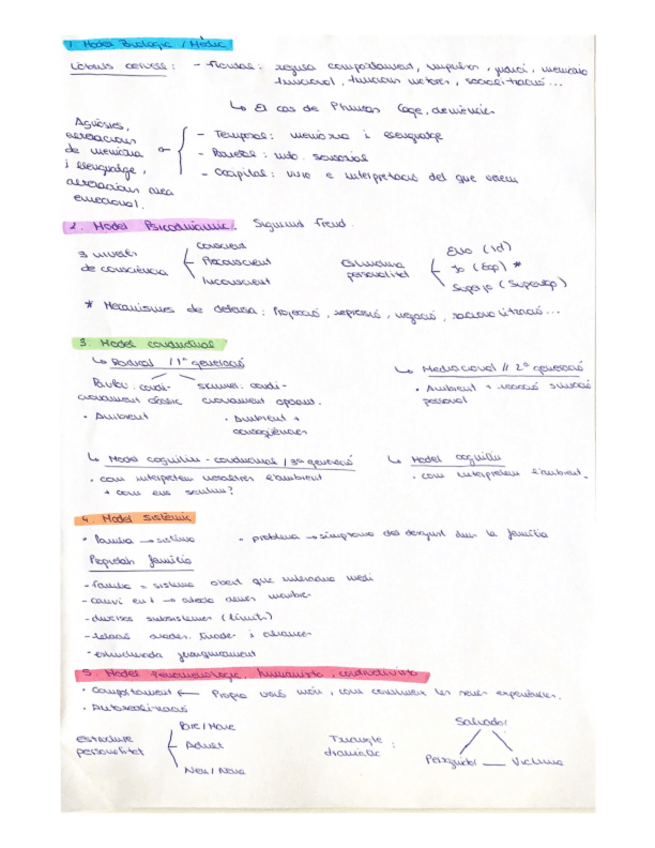 1. Model Biològic / Mèdic
Lòbuls cervell: - Frontal: regula comportament, impulsos, judici, memòria
funcional, funcions motores, socialització...
↳ El cas de Phineas Gage, demències
Agnòsies,
alteracions
de memòria
i llenguatge,
alteracions àrea
emocional.
- Temporal: memòria i llenguatge
- Parietal: info. sensorial
- Occipital: visió e interpretació del que veiem
2. Model Psicodinàmic. Sigmund Freud.
3 nivells
de consciència
Conscient
Preconscient
Inconscient
personalitat
Ello (Id)
Jo (Ego) *
Superjo (Superego)
* Mecanismes de defensa: Projecció, repressió, negació, racionalització...
3. Model conductual
↳ Radical / 1ª generació
Pavlov: condi-
cionament clàssic
• Ambient
Skinner: condi-
cionament operant.
• Ambient +
conseqüències
↳ Mediacional // 2ª generació
• Ambient + reacció situació
personal
↳ Model cognitiu-conductual / 3ª generació
• com interpretem nosaltres l'ambient
+ com ens sentim?
↳ Model cognitiu
• com interpretem l'ambient.
4. Model Sistèmic
• Família → sistema
• problema → símptoma del desajust dins la família
Propietats família
- família = sistema obert que interactua medi
- canvi en 1 → afecta altres membres
- diversos subsistemes (límits)
- relació
- estructurada jeràrquicament
5. Model Fenomenològic, humanista, constructivista
• Comportament ← Pròpia visió món, com construïm les seves experiències.
• Autorealització
estructura
personalitat
Pare / Mare
Adult
Nen / Nena
Triangle
dramàtic :
Salvador
Perseguidor — Víctima